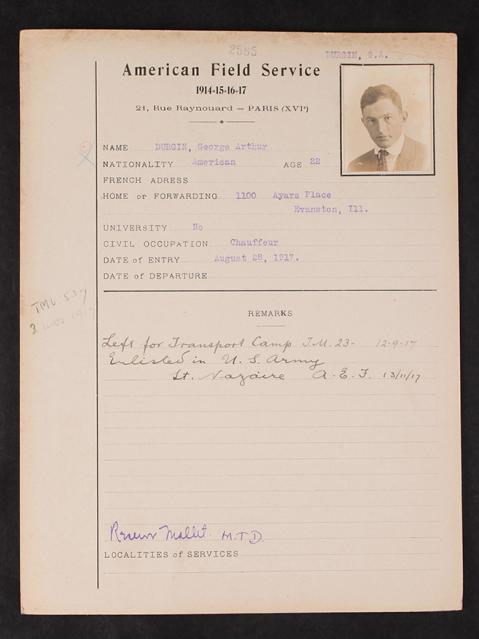 2585
DURGIN, G.A.
American Field Service
1914-15-16-17
21, Rue Raynouard — PARIS (XVIe)
NAME DURGIN, George Arthur
NATIONALITY American AGE 22
FRENCH ADRESS
HOME or FORWARDING 1100 Ayars Place
Evanston, Ill.
UNIVERSITY No
CIVIL OCCUPATION Chauffeur
DATE of ENTRY August 28, 1917.
DATE of DEPARTURE
TMU 537
REMARKS
Left for Transport Camp T.M. 23- 12-9-17
Enlisted in U.S. Army
St. Nazaire A.E.F. 13/11/17
Reserve Mallet. M.T.D.
LOCALITIES of SERVICES